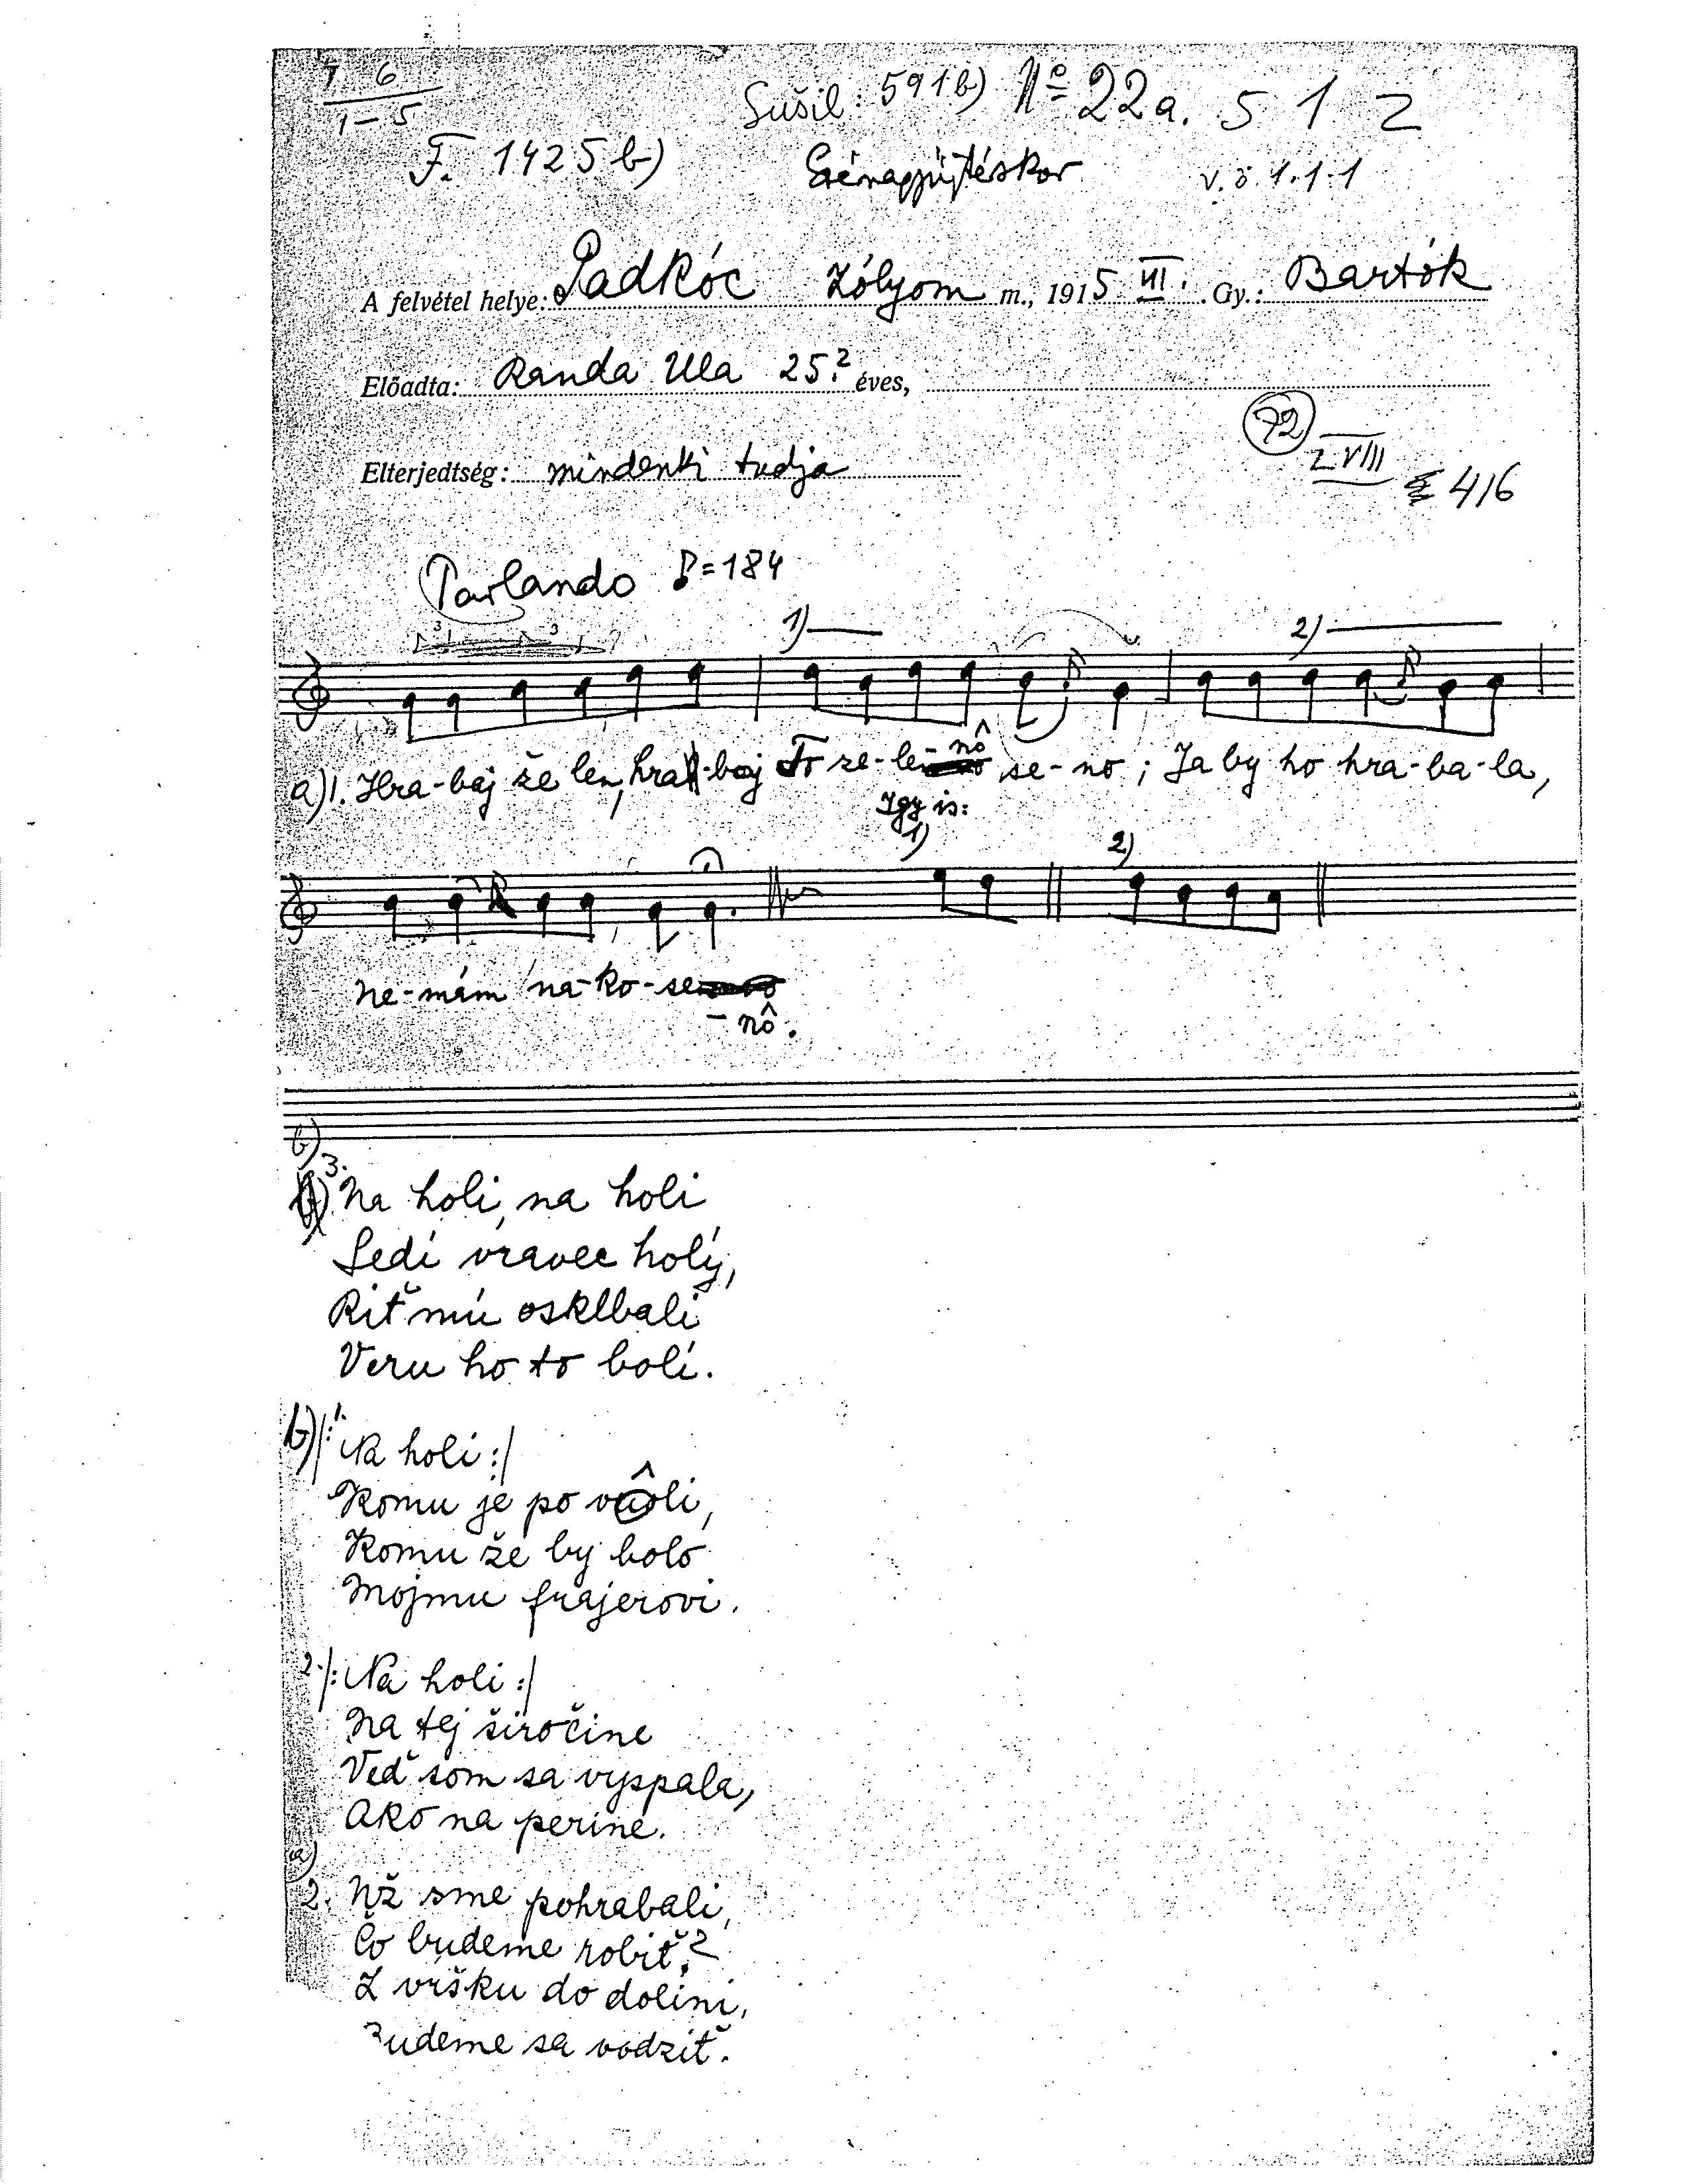 7 6
1-5
Sušil: 591b) No 22a. 5 1 2
F. 1425 b)
Szénagyűjtéskor v. ö. 1.1.1
A felvétel helye: Padkóc Zólyom m., 1915 VII. Gy.: Bartók
Előadta: Randa Ula 25? éves,
72
Z VIII
Elterjedtség: mindenki tudja
416
Parlando ♪=184
3 3
1) 2)
a) 1. Hra-baj že len, hra-baj To ze-le-nô se-no; Ja by ho hra-ba-la,
Igy is:
1) 2)
Ne-mám na-ko-se
-nô.
b)
3.
Na holi, na holi
Sedí vravec holý,
Riť mú osklbali
Veru ho to bolí.
b) 1.
/: Na holi :/
Komu je po vôli,
Komu že by bolo
Mojmu frajerovi.
2. /: Na holi :/
Na tej široćine
Veď som sa vyspala,
Ako na perine.
a)
2. Už sme pohrabali,
Čo budeme robiť?
Z vŕšku do dolini,
Budeme sa vodziť.